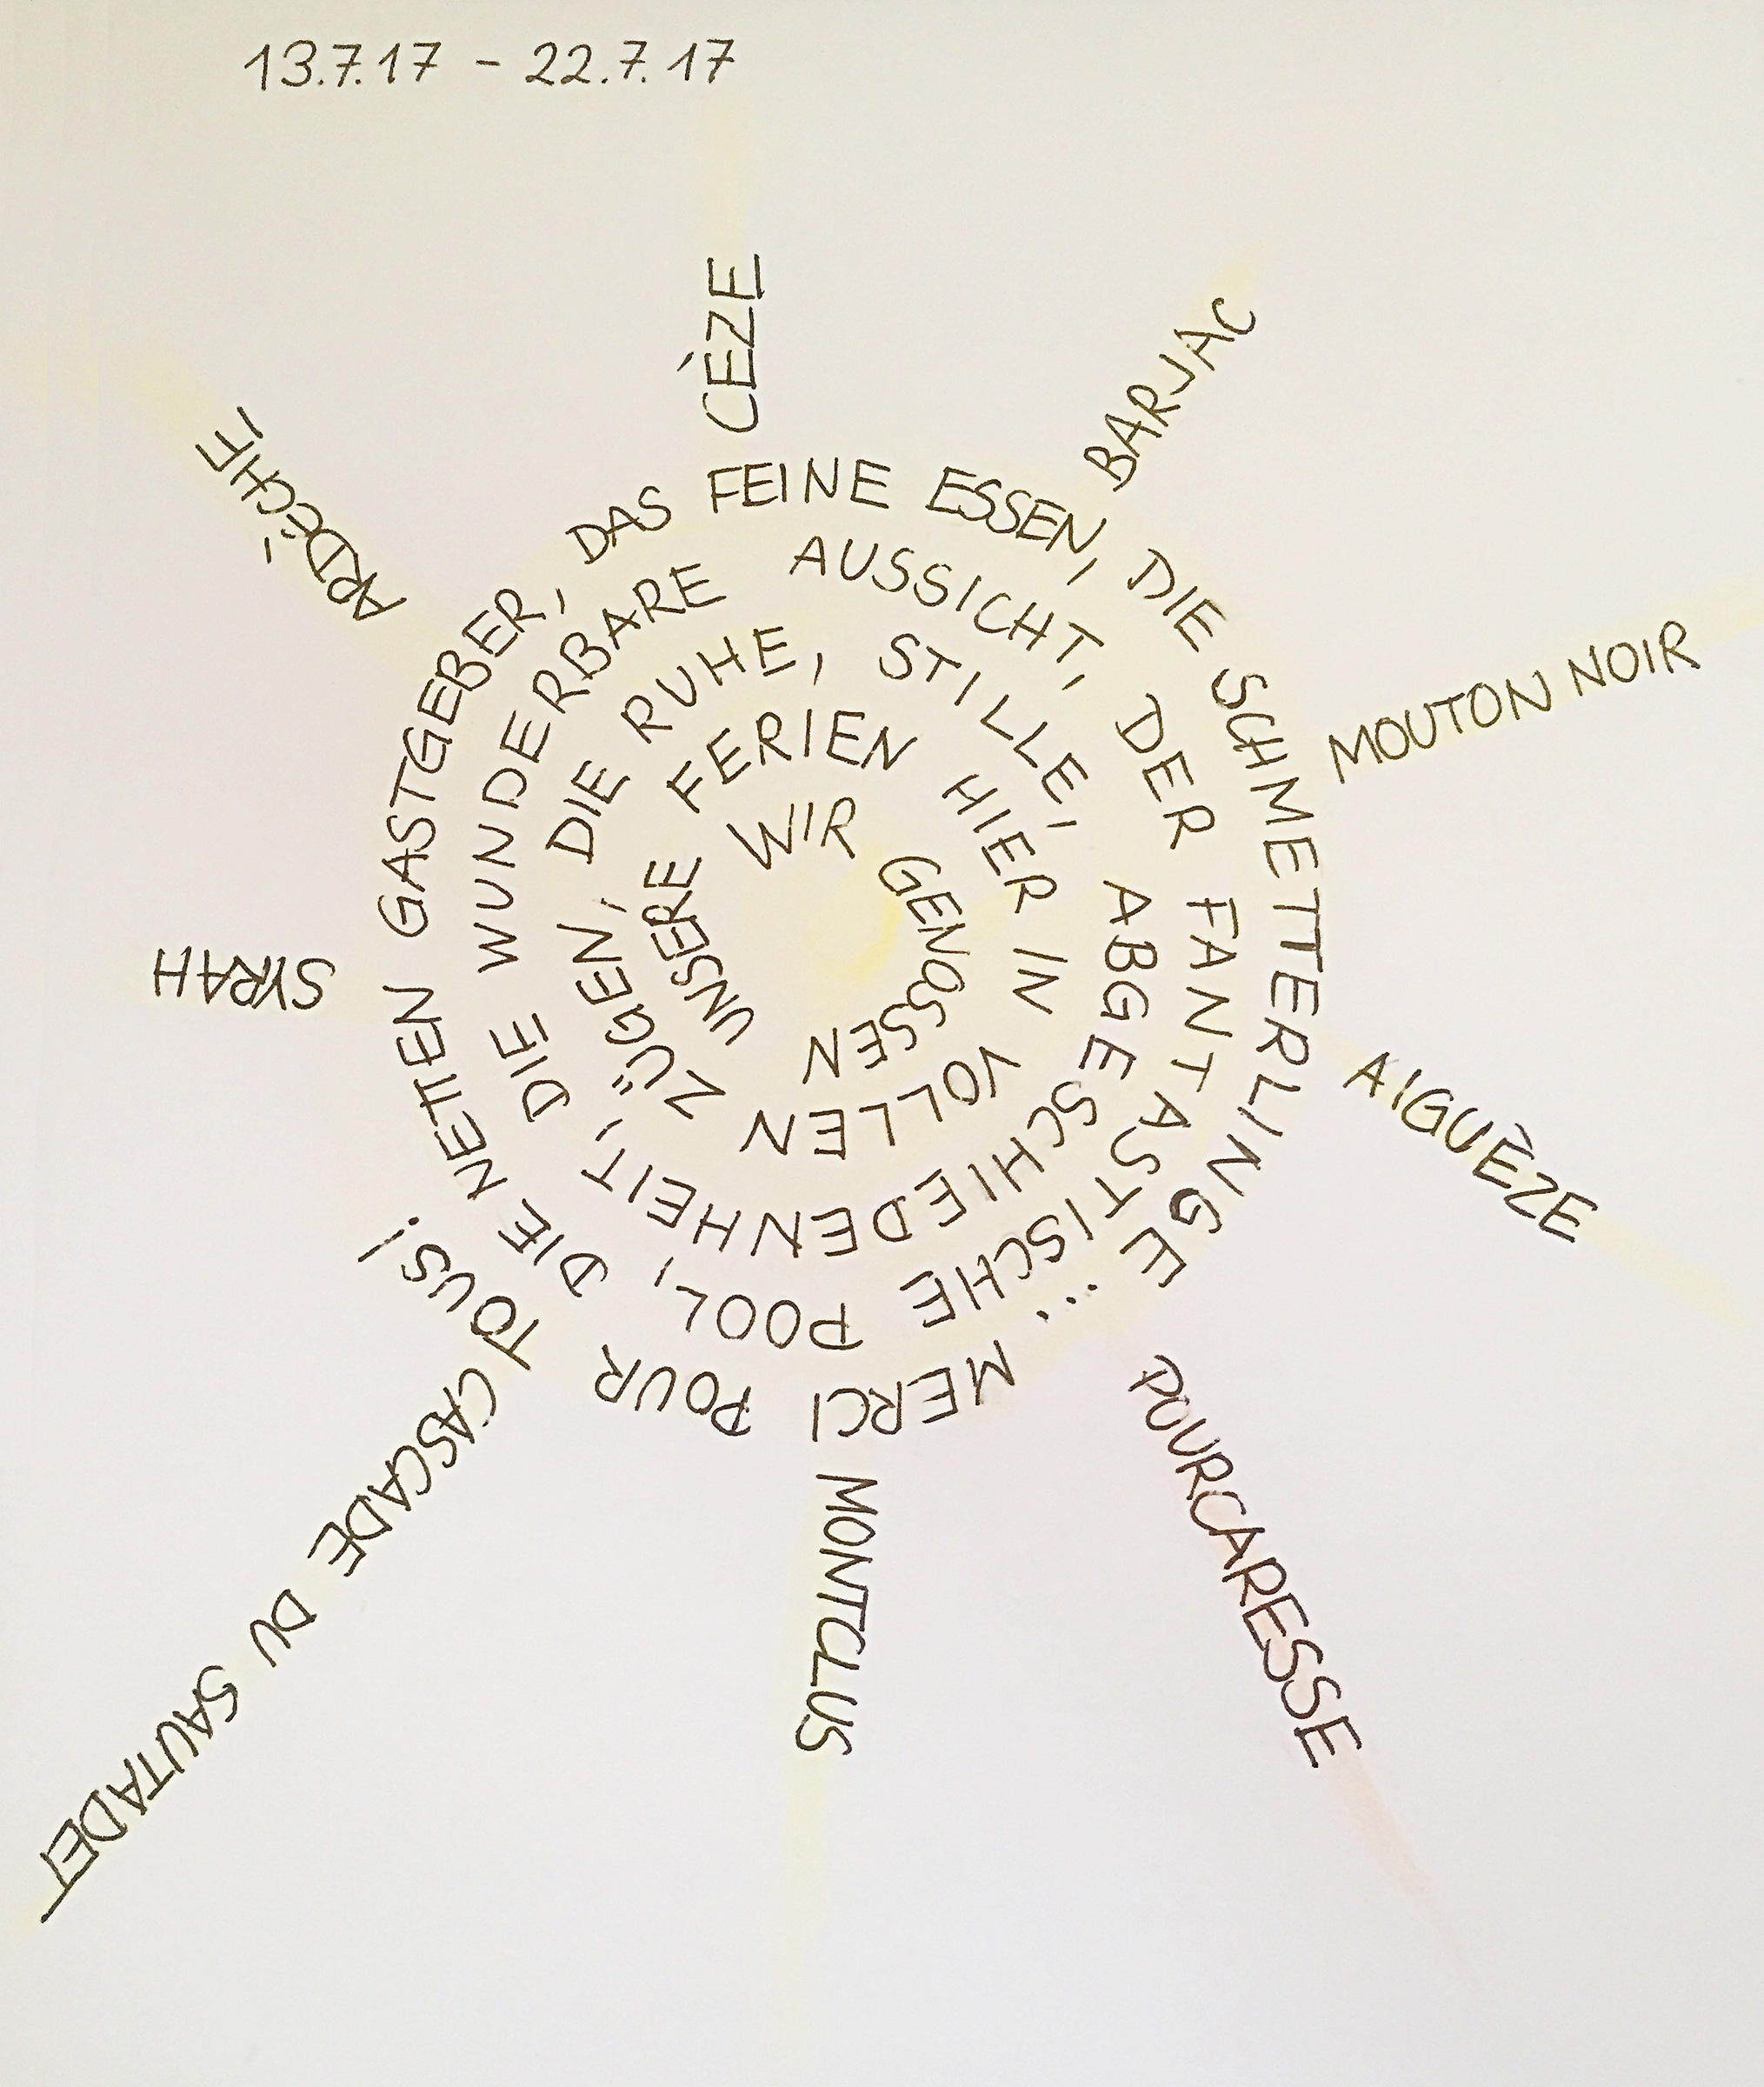 13.7.17 - 22.7.17
WIR GENOSSEN UNSERE FERIEN HIER IN VOLLEN ZÜGEN, DIE RUHE, STILLE, ABGESCHIEDENHEIT, DIE WUNDERBARE AUSSICHT, DER FANTASTISCHE POOL, DIE NETTEN GASTGEBER, DAS FEINE ESSEN, DIE SCHMETTERLINGE... MERCI POUR TOUS!
CÈZE
BARJAC
MOUTON NOIR
AIGUÈZE
POURCARESSE
MONTCLUS
CASCADE DU SAUTADET
SYRAH
ARDÈCHE